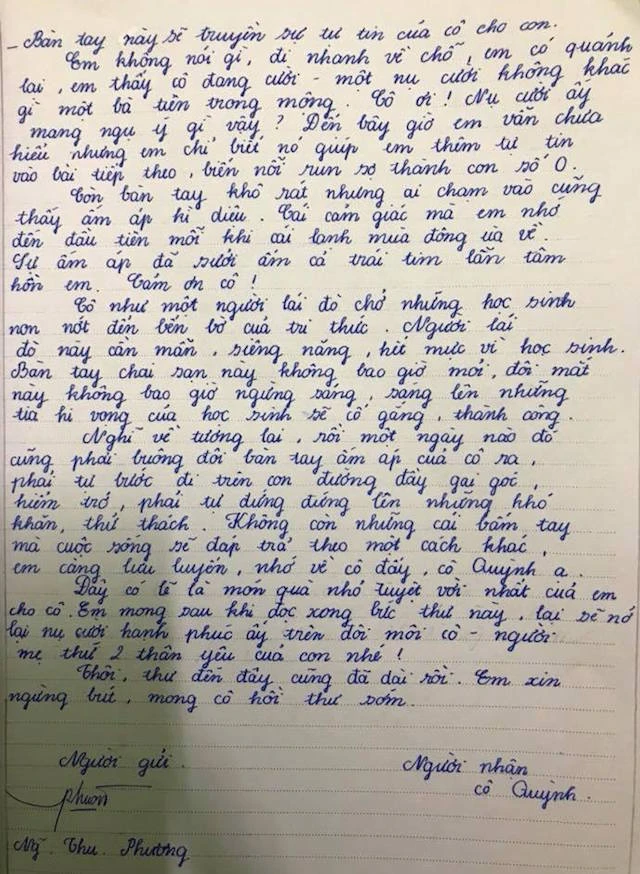 - Bàn tay này sẽ truyền sự tự tin của cô cho con.
Em không nói gì, đi nhanh về chỗ, em có quánh
lại, em thấy cô đang cười - một nụ cười không khác
gì một bà tiên trong mộng. Cô ơi! Nụ cười ấy
mang ngụ ý gì vậy? Đến bây giờ em vẫn chưa
hiểu nhưng em chỉ biết nó giúp em thêm tự tin
vào bài tiếp theo, biến nỗi run sợ thành con số 0.
Còn bàn tay khô rát nhưng ai chạm vào cũng
thấy ấm áp kì diệu. Cái cảm giác mà em nhớ
đến đầu tiên mỗi khi cái lạnh mùa đông ùa về.
Sự ấm áp đã sưởi ấm cả trái tim lẫn tâm
hồn em. Cảm ơn cô!
Cô như một người lái đò chở những học sinh
non nớt đến bến bờ của tri thức. Người lái
đò này cần mẫn, siêng năng, hết mực vì học sinh.
Bàn tay chai sạn này không bao giờ mỏi, đôi mắt
này không bao giờ ngừng sáng, sáng lên những
tia hi vọng của học sinh sẽ cố gắng, thành công.
Nghĩ về tương lai, rồi một ngày nào đó
cũng phải buông đôi bàn tay ấm áp của cô ra,
phải tự bước đi trên con đường đầy gai góc,
hiểm trở, phải tự đứng đứng lên những khó
khăn, thử thách. Không còn những cái bấm tay
mà cuộc sống sẽ đáp trả theo một cách khác,
em càng lưu luyến, nhớ về cô đấy, cô Quỳnh ạ.
Đây có lẽ là món quà nhỏ tuyệt vời nhất của em
cho cô. Em mong sau khi đọc xong bức thư này, lại sẽ nở
lại nụ cười hạnh phúc ấy trên đôi môi cô - người
mẹ thứ 2 thân yêu của con nhé!
Thôi, thư đến đây cũng đã dài rồi. Em xin
ngừng bút, mong cô hồi thư sớm.
Người gửi.
Người nhận
cô Quỳnh.
Phương
Ng~. Thu Phương